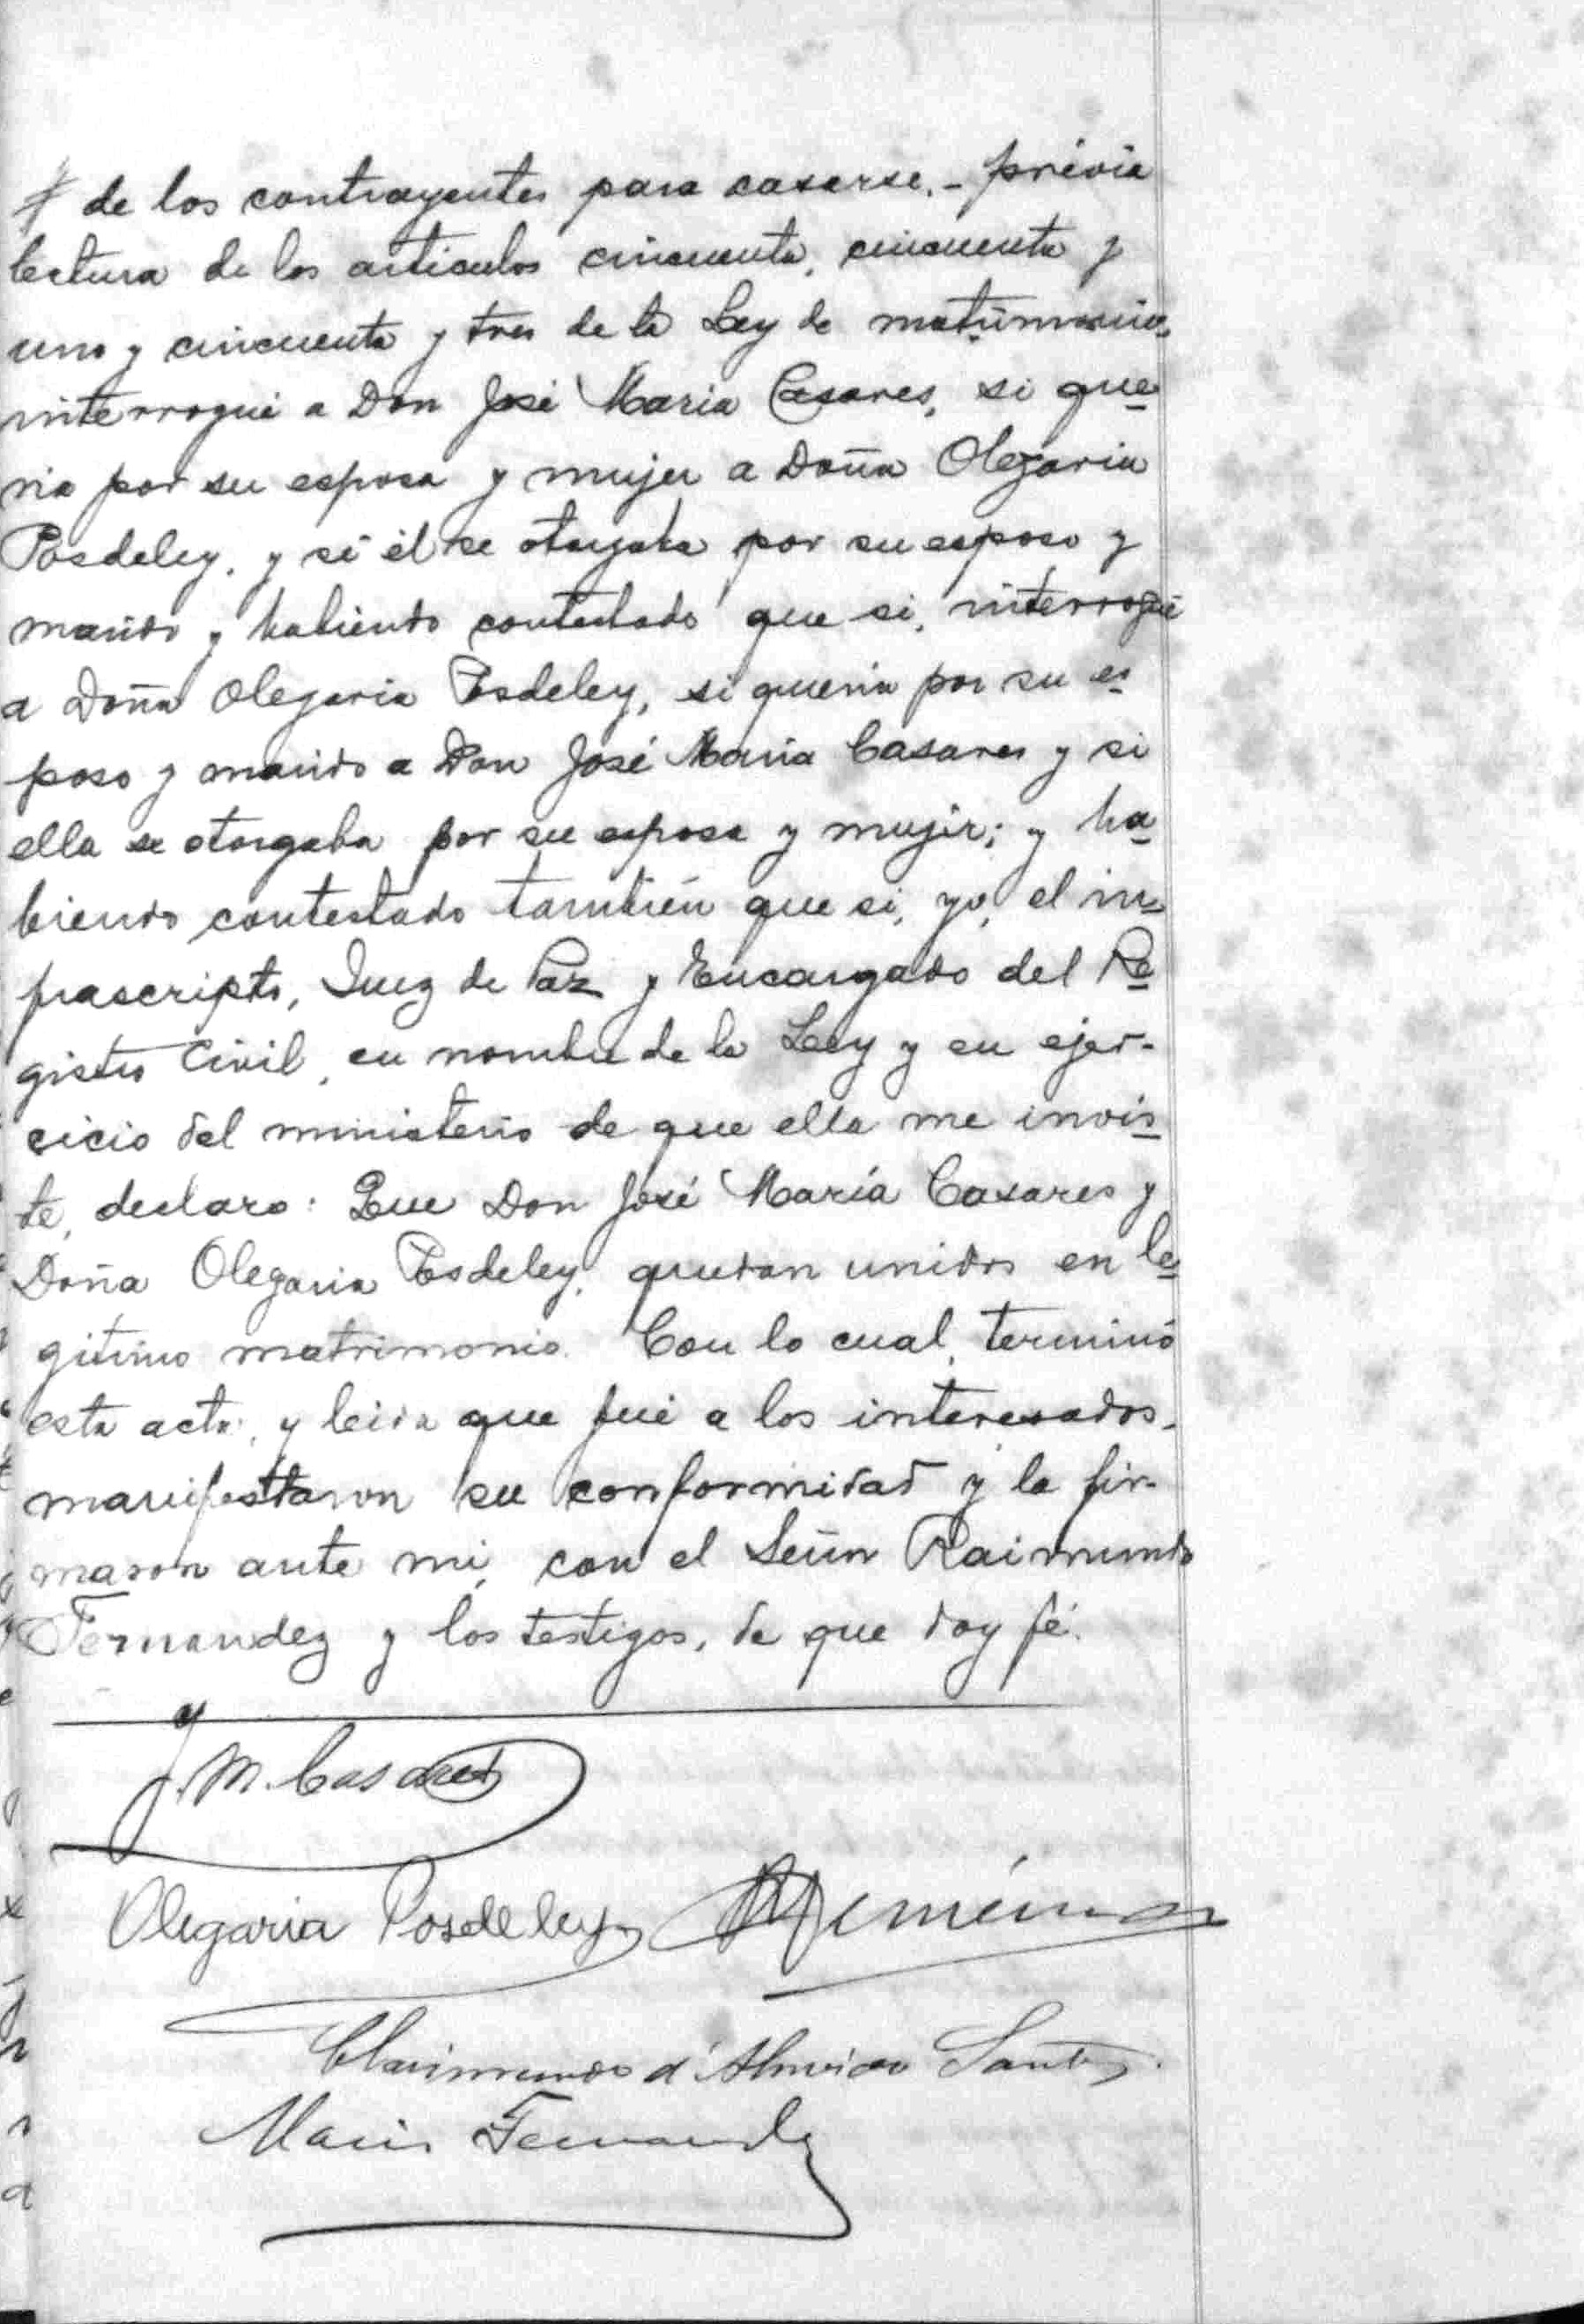 de los contrayentes para casarse. - prévia
lectura de los articulos cincuenta, cincuenta y
uno y cincuenta y tres de la Ley de matrimonio,
interrogué a Don José Maria Casares, si que
ria por su esposa y mujer a Doña Olegaria
Posdeley, y si él se otorgaba por su esposo y
marido y habiendo contestado que si, interrogué
a Doña Olegaria Posdeley, si queria por su es
poso y marido a Don José Maria Casares y si
ella se otorgaba por su esposa y mujer; y ha
biendo contestado también que si, yo, el in
frascripto, Juez de Paz y Encargado del Re
gistro Civil, en nombre de la Ley y en ejer-
cicio del ministerio de que ella me invis
te, declaro: Que Don José María Casares y
Doña Olegaria Posdeley, quedan unidos en le
gitimo matrimonio. Con lo cual, terminó
esta acta, y leida que fué a los interesados,
manifestaron su conformidad y la fir-
maron ante mi, con el Señor Raimundo
Fernandez y los testigos, de que doy fé.
J. M. Casares
Olegaria Posdeley
Clarimundo d'Almeida Santos
Fernandez